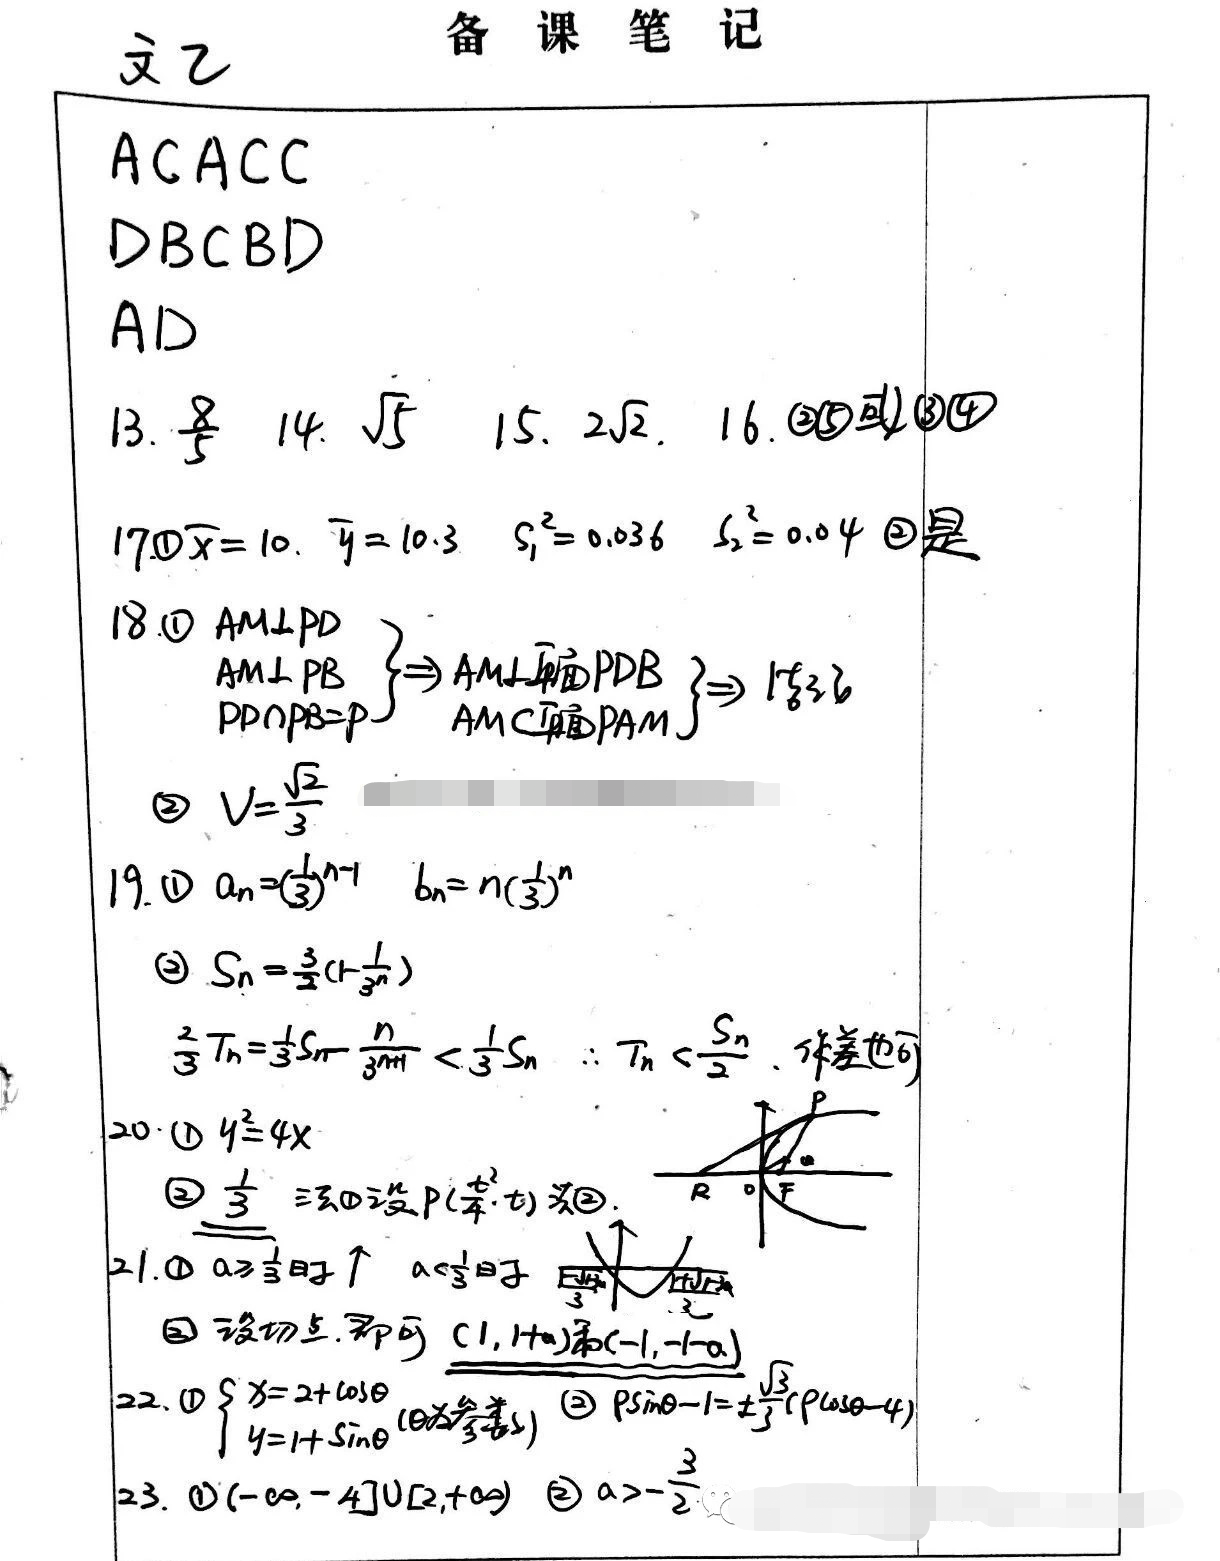 备课笔记
文乙
ACACC
DBCBD
AD
13. 8/5 14. √5 15. 2√2. 16. ②⑤或③④
17.① x̄=10. ȳ=10.3 S₁²=0.036 S₂²=0.04 ②是
18.① AM⊥PD
AM⊥PB
PD∩PB=P
} ⇒ AM⊥平面PDB
AM⊂平面PAM
} ⇒
② V=√2/3
19.① aₙ=(1/3)ⁿ⁻¹ bₙ=n(1/3)ⁿ
② Sₙ=3/2(1-1/3ⁿ)
2/3Tₙ=1/3Sₙ-n/3ⁿ⁺¹<1/3Sₙ ∴Tₙ<Sₙ/2. 作差也可
20.① y²=4x
② 1/3 设P(t²/4·t)
P
Q
R O F
21.① a≥1/3时↑ a<1/3时
② 设切点.即可 (1,1+a)和(-1,-1-a)
22.① { x=2+cosθ
y=1+sinθ (θ为参数) ② ρsinθ-1=±√3/3(ρcosθ-4)
23.① (-∞,-4]∪[2,+∞) ② a>-3/2